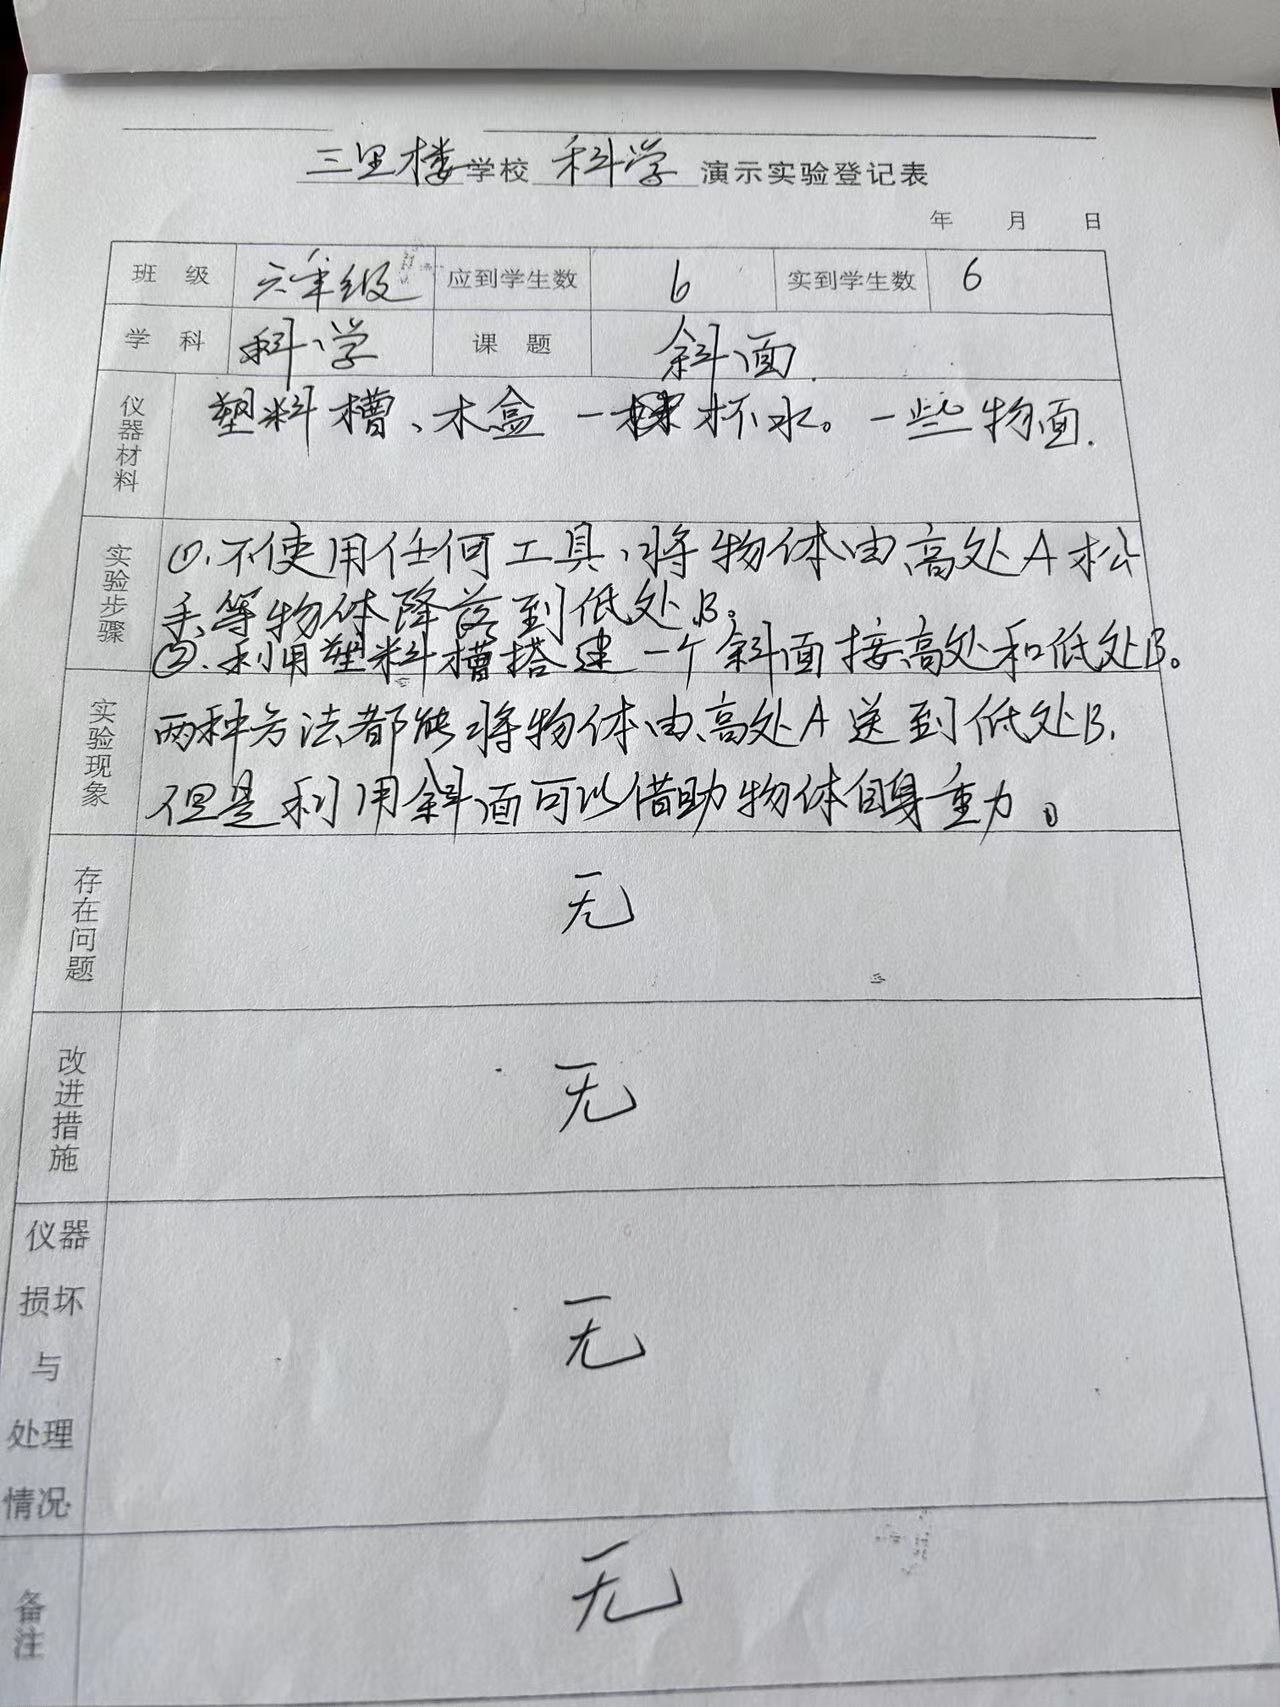 三里楼学校 科学 演示实验登记表
年 月 日
班 级 六年级 应到学生数 6 实到学生数 6
学 科 科学 课 题 斜面.
仪器材料 塑料槽、木盒 一杯水。一些物面.
实验步骤 ①.不使用任何工具,将物体由高处A松
手等物体降落到低处B。
②.利用塑料槽搭建一个斜面接高处和低处B。
实验现象 两种方法都能将物体由高处A送到低处B,
但是利用斜面可以借助物体自身重力。
存在问题 无
改进措施 无
仪器
损坏
与
处理
情况 无
备注 无